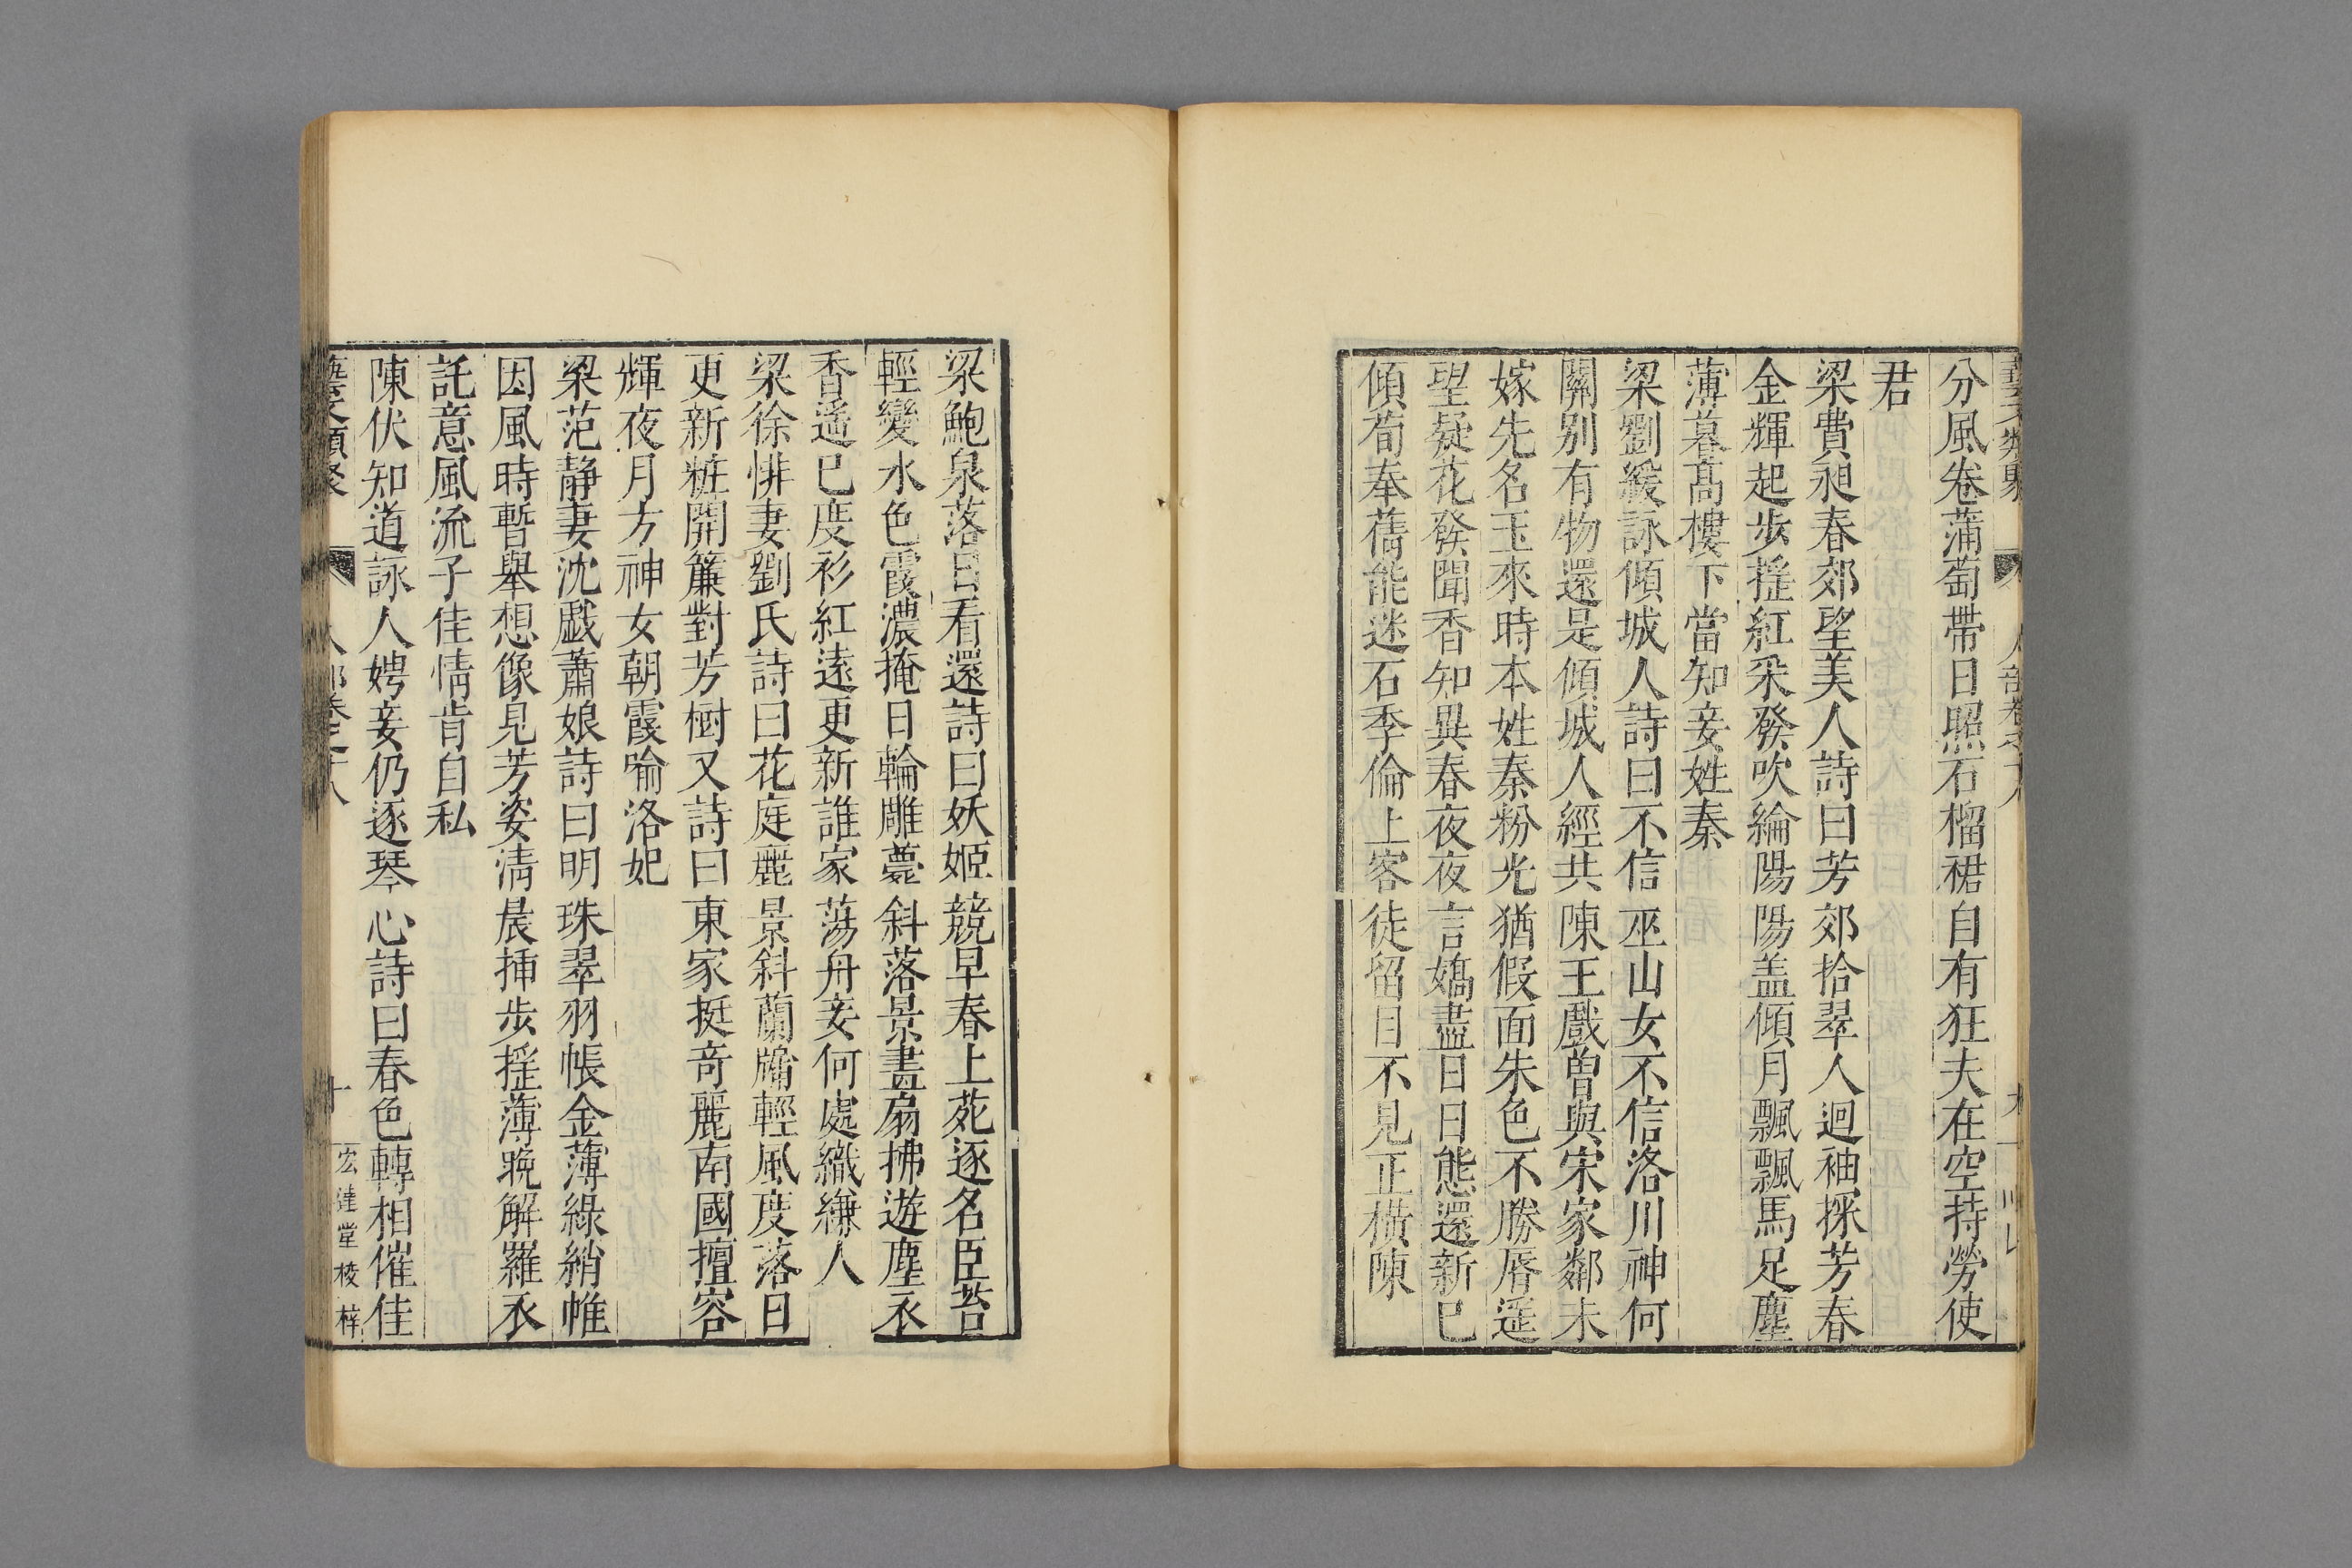 分風卷蒲萄帶日照石榴裙自有狂夫在空持勞使
君
梁費昶春郊望美人詩曰芳郊拾翠人迴袖採芳春
金輝起步揺紅釆發吹綸陽陽盖傾月飄飄馬足塵
薄暮髙樓下當知妾姓秦
梁劉緩詠傾城人詩曰不信巫山女不信洛川神何
關别有物還是傾城人經共陳王戲曽與宋家鄰未
嫁先名玉來時本姓秦粉光猶假面朱色不勝脣遥
望疑花發聞香知異春夜夜言嬌盡日日態還新已
傾荀奉蒨能迷石季倫上客徒留目不見正橫陳
梁鮑泉落日看還詩曰妖姬競早春上苑逐名臣苔
輕變水色霞濃掩日輪雕甍斜落景畫扇拂遊塵衣
香遥已度衫紅遠更新誰家蕩舟妾何處織縑人
梁徐悱妻劉氏詩曰花庭麗景斜蘭牕輕風度落日
更新粧開簾對芳樹又詩曰東家挺奇麗南國擅容
輝夜月方神女朝霞喻洛妃
梁范静妻沈戯蕭娘詩曰明珠翠羽帳金薄綠綃帷
因風時暫舉想像見芳姿淸晨揷步揺薄晚解羅衣
託意風流子佳情肯自私
陳伏知道詠人娉妾仍逐琴心詩曰春色轉相催佳
藝文類聚 人部卷之十八 十 宏達堂校梓